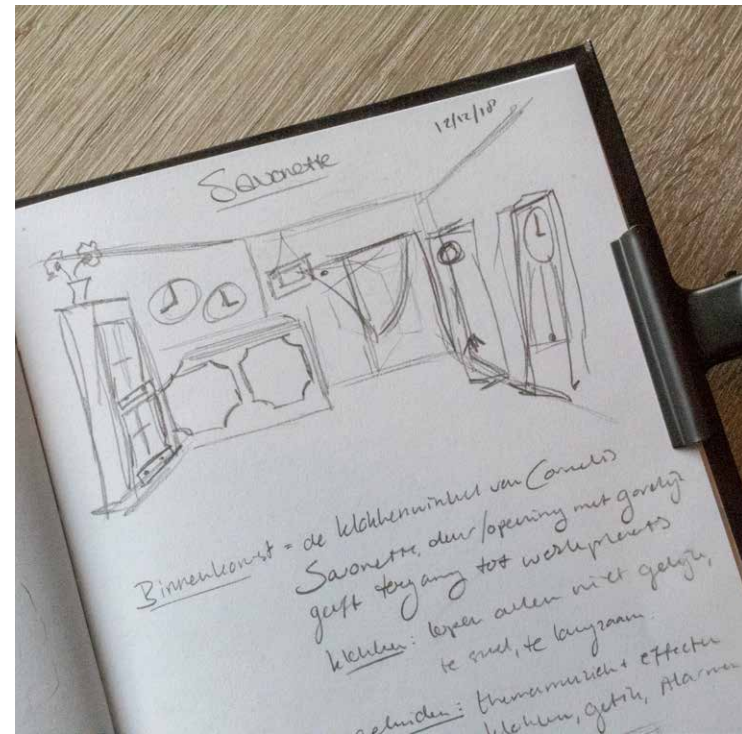 12/12/18
Savonette
Binnenkomst = de klokkenwinkel van Cornelis
Savonette, deur/opening met gordijn
geeft toegang tot werkplaats
klokken: lopen allen niet gelijk,
te snel, te langzaam.
geluiden: themamuziek + effecten
klokken, getik, Alarmen